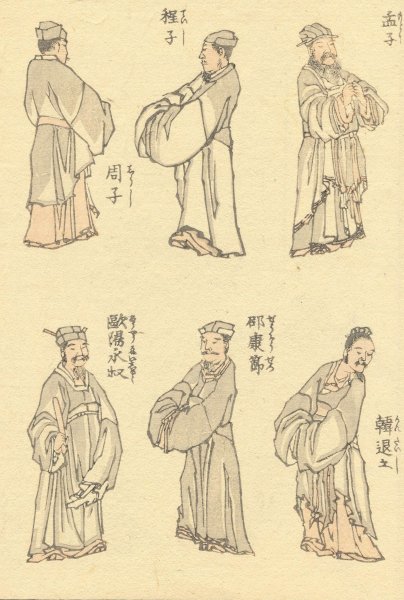 孟子
程子
ていし
周子
韓退之
邵康節
歐陽永叔